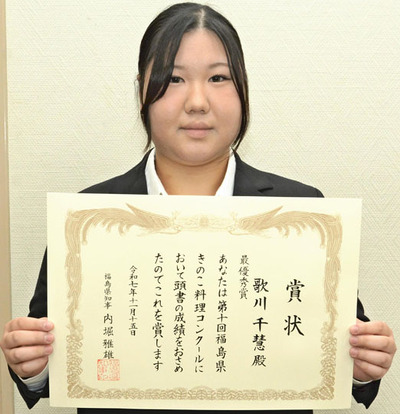 賞状
最優秀賞
歌川千慧殿
あなたは第十回福島県
きのこ料理コンクールに
おいて頭書の成績をおさめ
たのでこれを賞します
令和七年十一月十五日
福島県知事 内堀雅雄